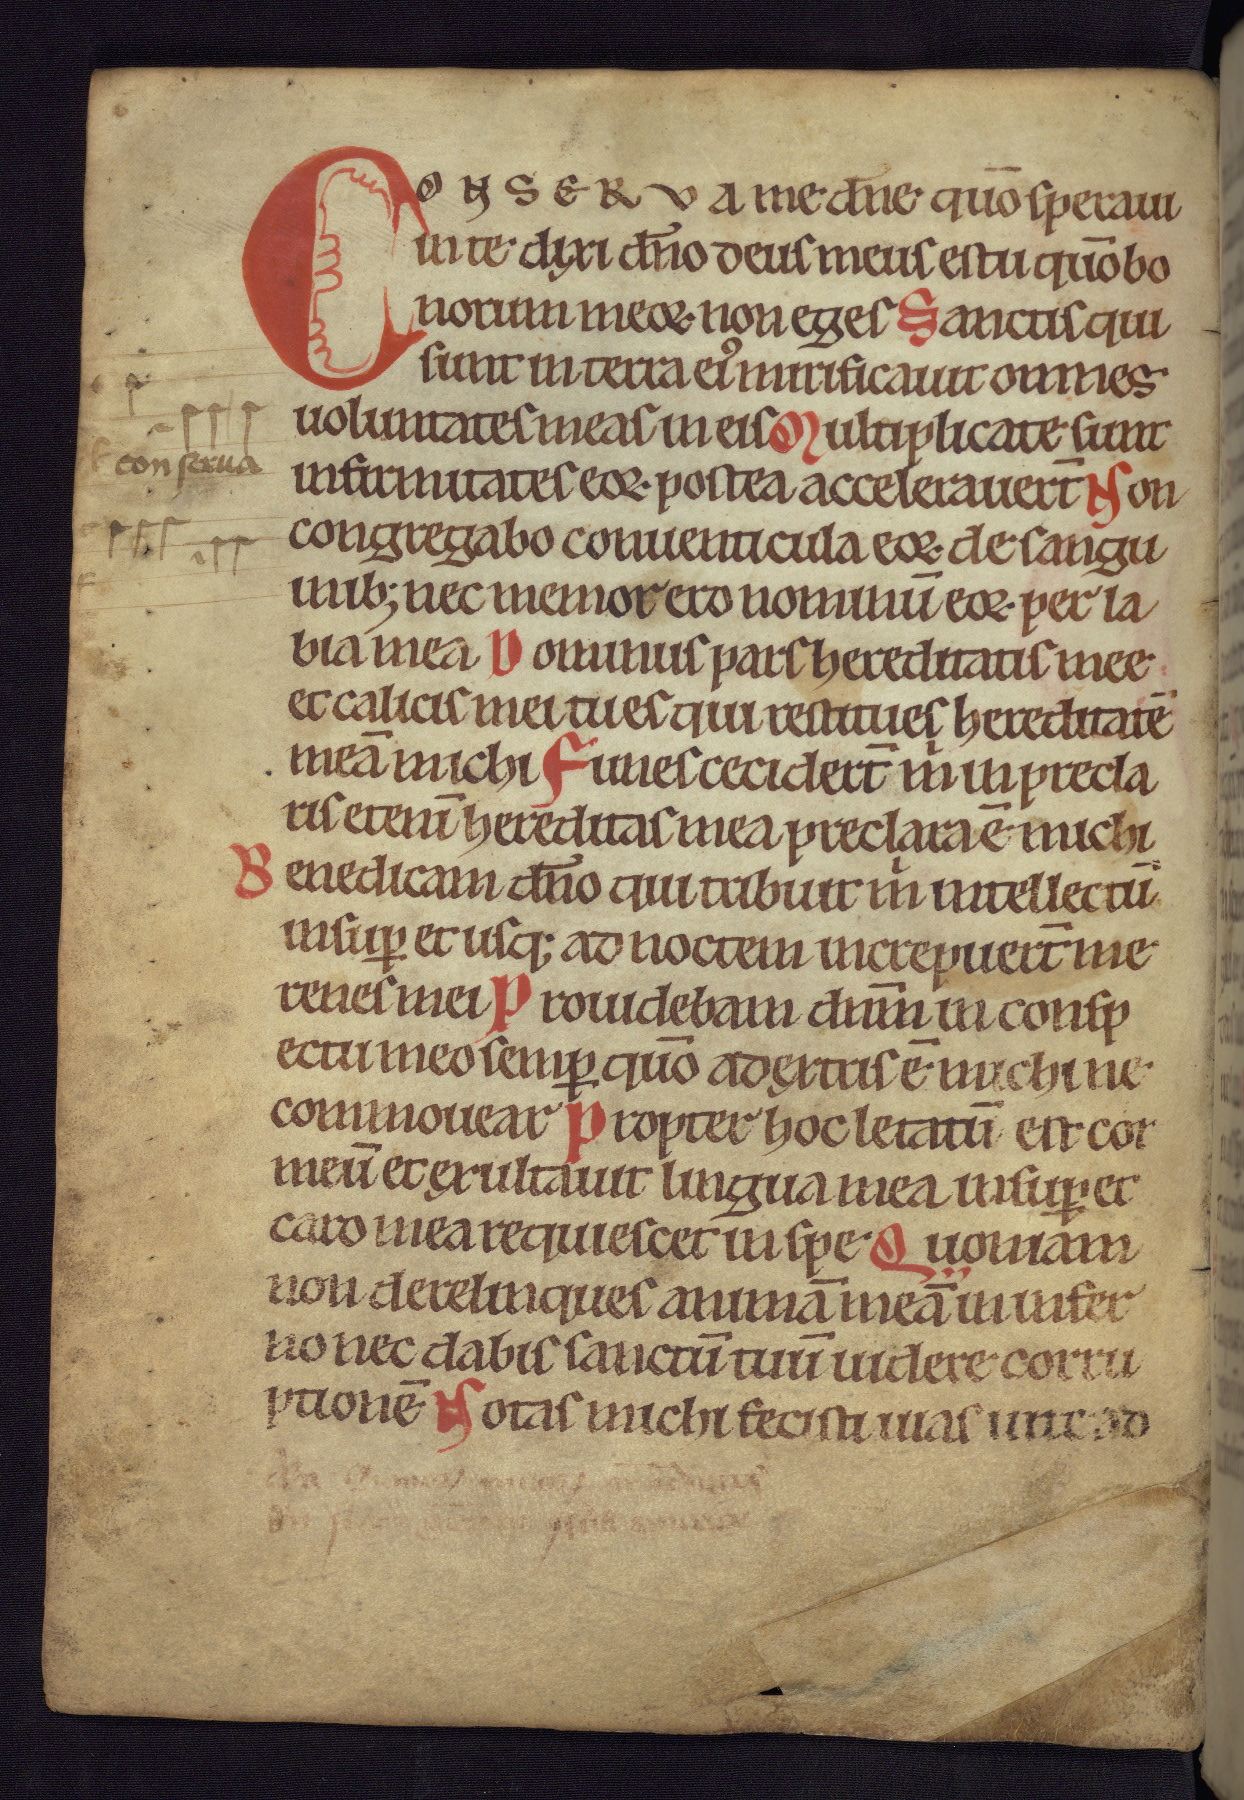 CONSERVA me dn̄e qūo speraui
in te dixi dn̄o deus meus es tu qūo bo
norum meoꝝ non eges Sanctis qui
sunt in terra eiꝰ mirificauit omnes
uoluntates meas in eis Multiplicate sunt
conserua
infirmitates eoꝝ postea accelerauert̄ Non
congregabo conuenticula eoꝝ de sangu
inib; nec memor ero nominū eoꝝ per la
bia mea Dominus pars hereditatis mee
et calicis mei tu es qui restitues hereditatē
meā michi Funes cecidert̄ m̍ in precla
ris etenī hereditas mea preclara ē michi
Benedicam dn̄o qui tribuit m̍ intellectū
insuꝑ et usq; ad noctem increpuert̄ me
renes mei Prouidebam dn̄m in consp
ectu meo semꝑ qūo a dextris ē michi ne
commouear Propter hoc letatū est cor
meū et exultauit lingua mea insuꝑ et
caro mea requiescet in spe Quoniam
non derelinques animā meā in infer
no nec dabis sanctū tuū uidere corru
ptionē Notas michi fecisti uias uite ad